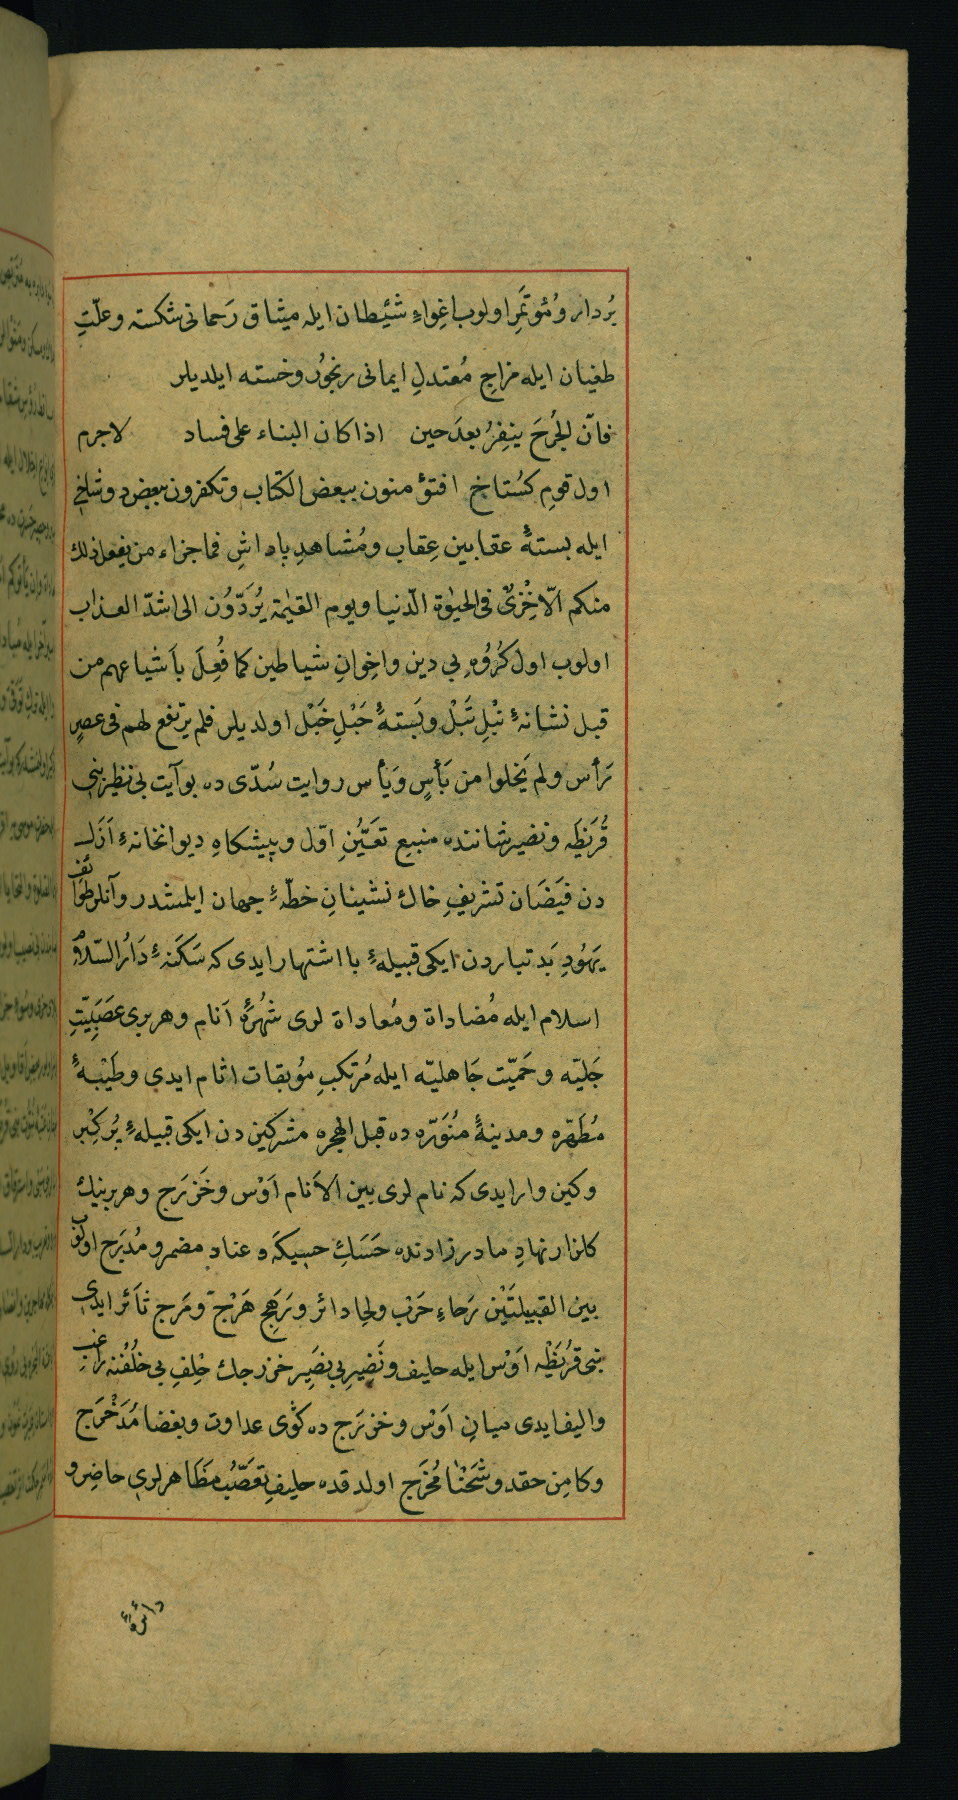 بُردار ومُؤتمَرِ اولوب اغِواءِ شَيْطان ايله ميثاق رَحمانى شكسته وعلّتِ
طغيان ايله مزاجِ مُعتدلِ ايمانى رنجُور وخسته ايلديلر
فانّ الجُرحَ ينفِرُ بعدَ حين اذا كان البناء على فساد لاجرم
اول قومِ كُستاخ افتؤمنون ببعض الكتاب وتكفرون ببعض
ايله بستهٔ عقابين عِقاب ومُشاهدِ پاداشِ فما جزاء من يفعل ذلك
منكم الّا خِزىٌ فى الحيٰوة الدّنيا ويوم القيٰمة يُرَدّوُن الى اشدّ العذاب
اولوب اول كرُوُهِ بى دين واخِوانِ شياطين كما فُعِلَ باَشياعهم من
قبل نشانهٔ نَبْلِ تَبْل وبَستهٔ حَبْلِ خَبْل اولديلر فلم يرتفع لهم فى عصرٍ
رَأس ولم يَخلوا من بَأسٍ وَيأس روايت سُدّى ده بو آيت بى نظير بنى
قُرَيظَه ونضير شاننده منبعِ تعَيّنِ اوّل وپيشكاهِ ديوانخانهٔ اَزَل
دن فيَضَان تشريفِ خاك نشينانِ خطّهٔ جهان ايلمشدر وآنلر طوَائف
يَهُودِ بَد تباردن ايكى قبيلهٔ با اشتهار ايدى كه سَكَنهٔ دَارُ السّلام
اسلام ايله مُضاداة ومُعاداة لرى شُهرَهٔ اَنام وهربرى عصَبيّتِ
جَليّه وحَميّت جَاهليّه ايله مُرتكبِ مؤبقات اثام ايدى وطَيْبهٔ
مُطَهّره ومدينهٔ مُنَوّره ده قبل الهجره مشركين دن ايكى قبيلهٔ پُر كِبْر
وكين وار ايدى كه نام لرى بين الاَنام اَوْس وخَزرَج وهربرينك
كانزار نهادِ مادر زادنده حَسَكِ حسيكَه وعناد مضمر ومُدرَج اولوب
بين القبيلتَيْن رَحاءِ حَرْب ولحا دائر ورَهَجِ هَرْج ومَرج ثاَئر ايدى
بنى قريَظه اَوْس ايله حليف ونَضيرِ بى نضِير خزرجك حْلِفِ بى خُلفْنه راغب
واليف ايدى ميانِ اَوْس وخزرَج ده كوى عداوت وبغضا مُدَحْرَج
وكامِن حقد وشَحْنا مُخرَج اولدقده حليفِ تعصّبُ مظَاهرلرى حاضِر و
دائرهٔ